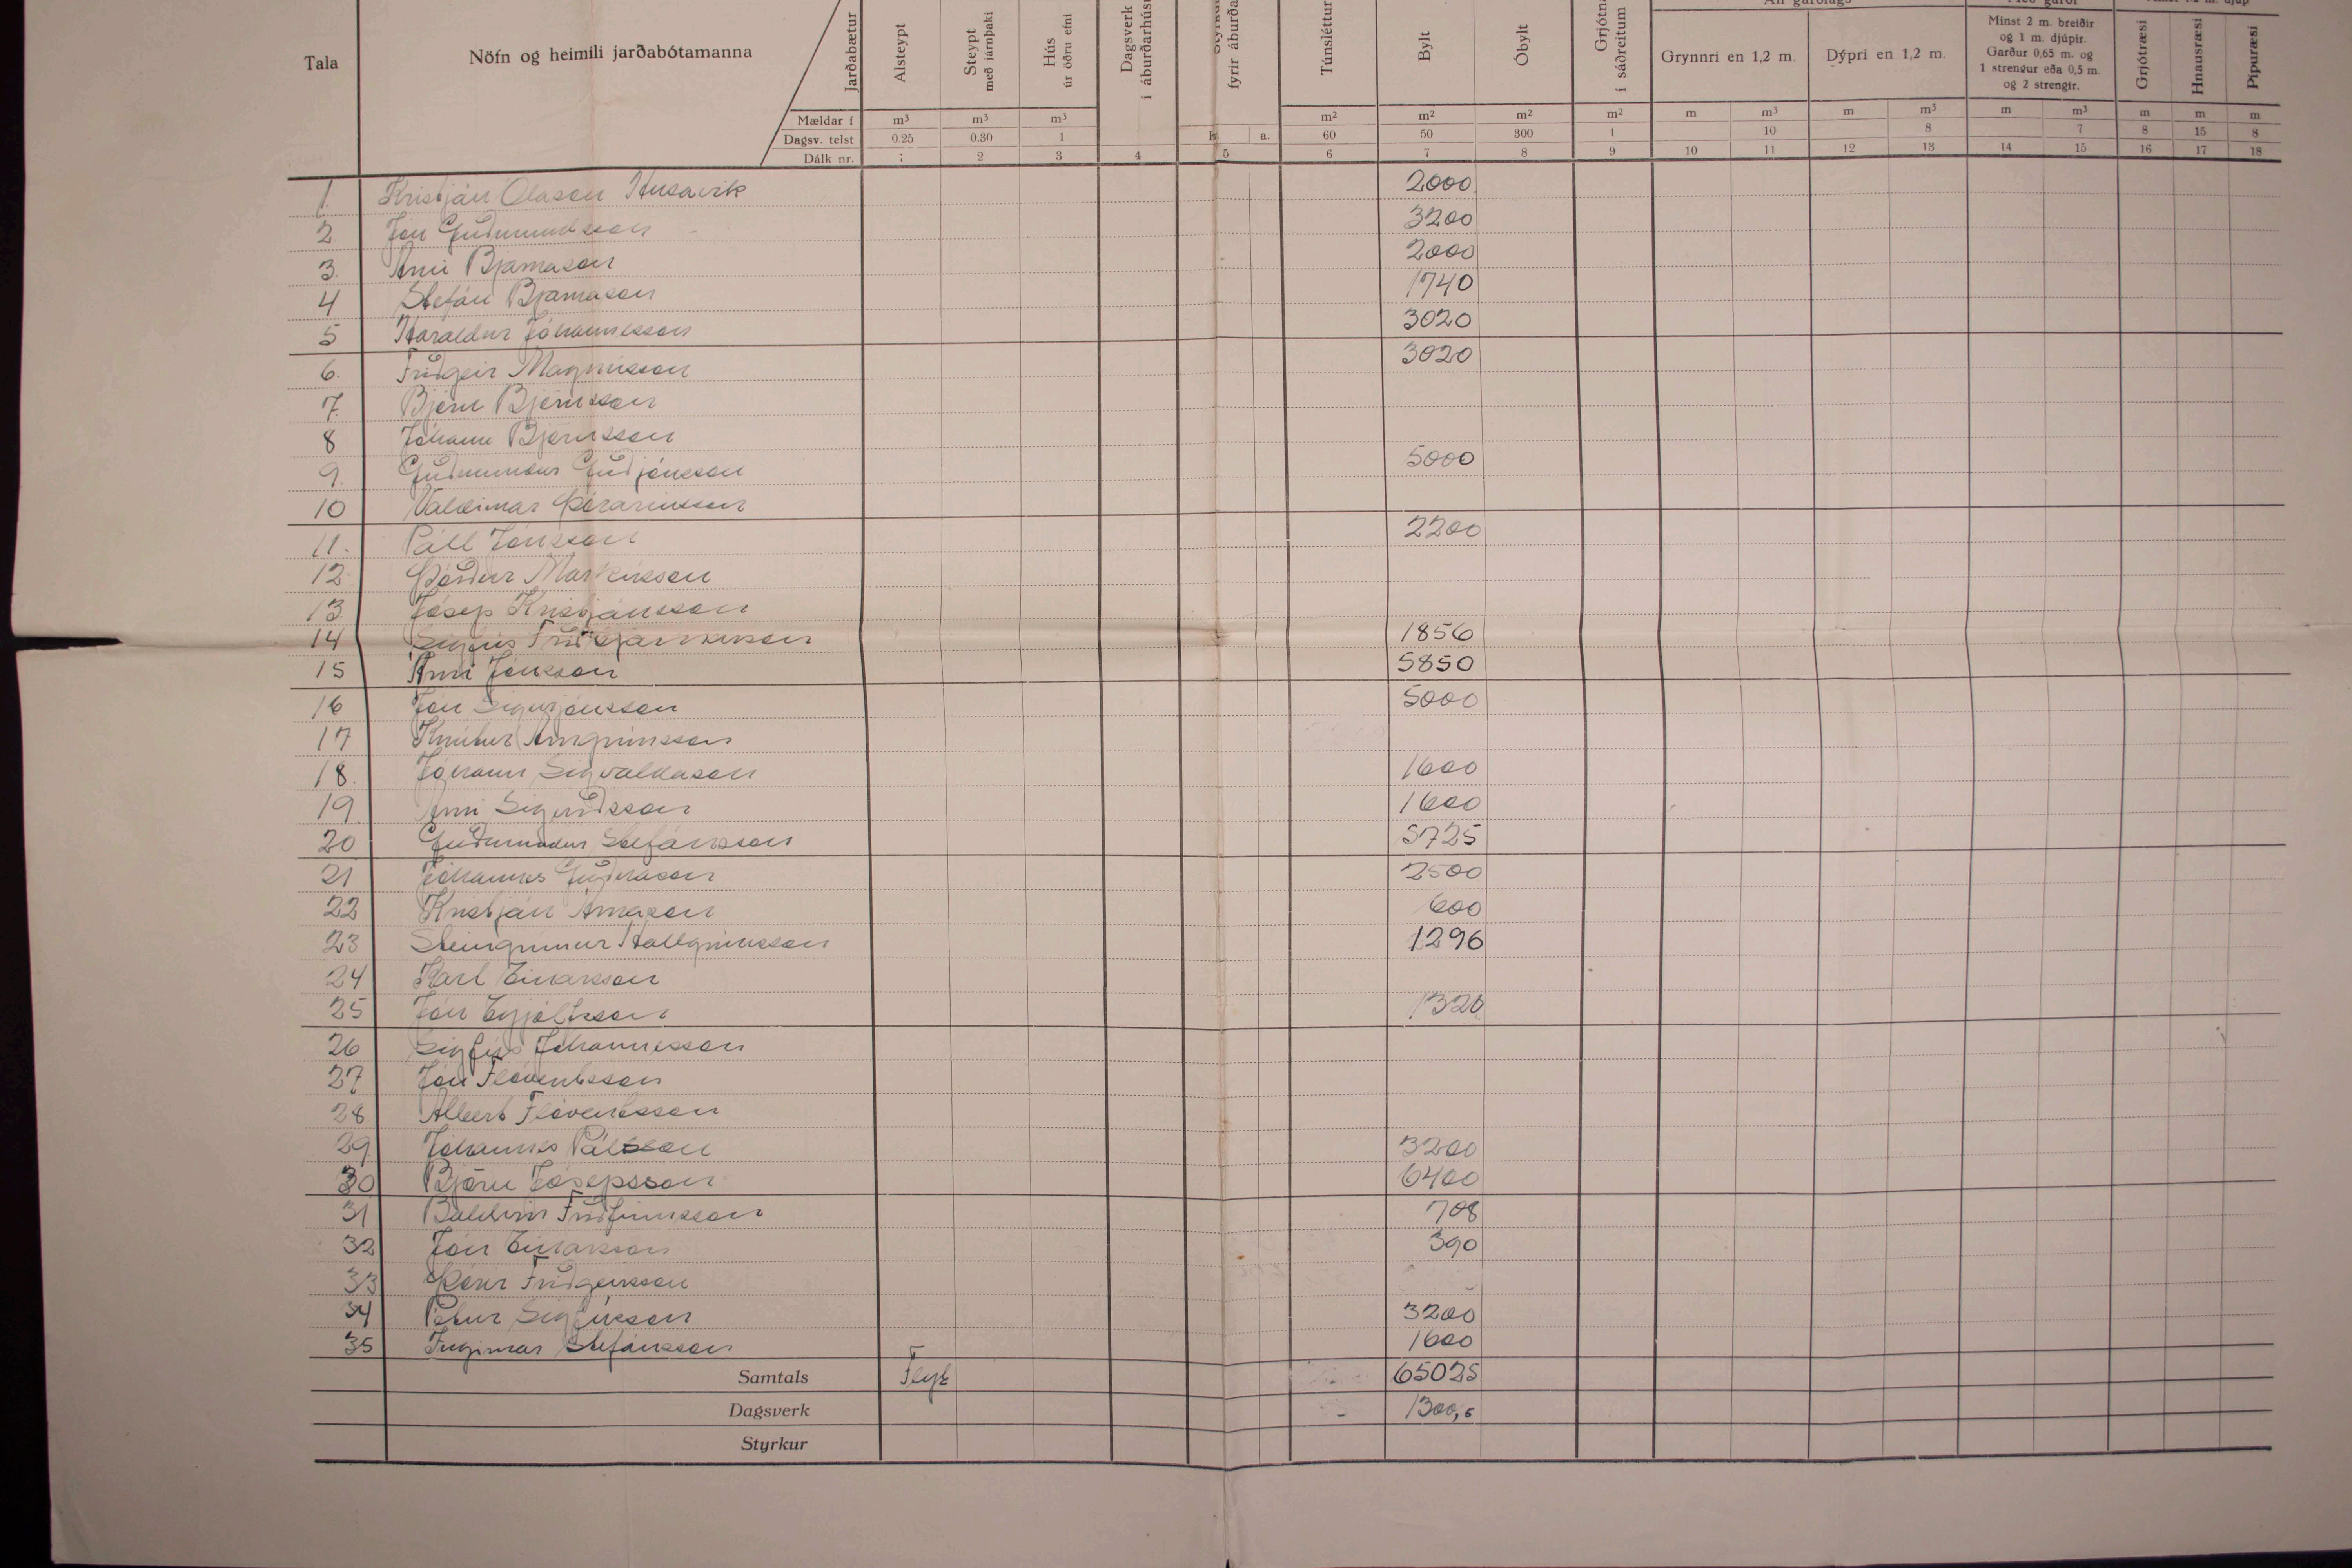 Tala
Nöfn og heimili jarðabótamanna
Jarðabætur
Mældar í
Dagsv. telst
Dálk nr.
Alsteypt m³ 0.25 1
Steypt með járnþaki m³ 0.30 2
Hús úr öðru efni m³ 1 3
Dagsverk í áburðarhúsi 4
fyrir áburða kr. a. 5
Túnsléttur m² 60 6
Bylt m² 50 7
Óbylt m² 300 8
í sáðreitum m² 1 9
Grynnri en 1,2 m. m m³ 10 10 11
Dýpri en 1,2 m. m m³ 8 12 13
Minst 2 m. breiðir
og 1 m. djúpir.
Garður 0,65 m. og
1 strengur eða 0,5 m.
og 2 strengir.
m m³ 7 14 15
Grjótræsi m 8 16
Hnausræsi m 15 17
Pípuræsi m 8 18
1. Kristján Ólason Húsavík 2000
2 Jón Guðmundsson - 3200
3. Árni Bjarnason 2000
4 Stefán Bjarnason 1740
5 Haraldur Jóhannesson 3020
6. Friðgeir Magnússon 3020
7. Björn Björnsson
8 Jóhann Björnsson
9. Guðmundur Guðjónsson 5000
10 Valdimar Þórarinsson
11. Páll Jónsson 2200
12 Þórður Markússon
13. Jósep Kristjánsson
14 Sigfús Friðbjarnarson 1856
15 Árni Jónsson 5850
16 Jón Sigurjónsson 5000
17 Knútur Arngrímsson
18. Jóhann Sigvaldason 1600
19. Árni Sigurðsson 1600
20 Guðmundur Stefánsson 5725
21 Jóhannes 2500
22 Kristján Árnason 600
23 Steingrímur Hallgrímsson 1296
24 Karl Einarsson
25 Jón Eyjólfsson 1320
26 Sigfús Jóhannesson
27 Jón Flóventsson
28 Albert Flóventsson
29 Jóhannes Pálsson 3200
30 Björn Jósepsson 6400
31 Baldvin Friðfinnsson 708
32 Jón Einarsson 390
33 Þórir Friðgeirsson
34 Pétur Sigfússon 3200
35 Ingimar Stefánsson 1600
Samtals Flyt 65025
Dagsverk - 1300,5
Styrkur